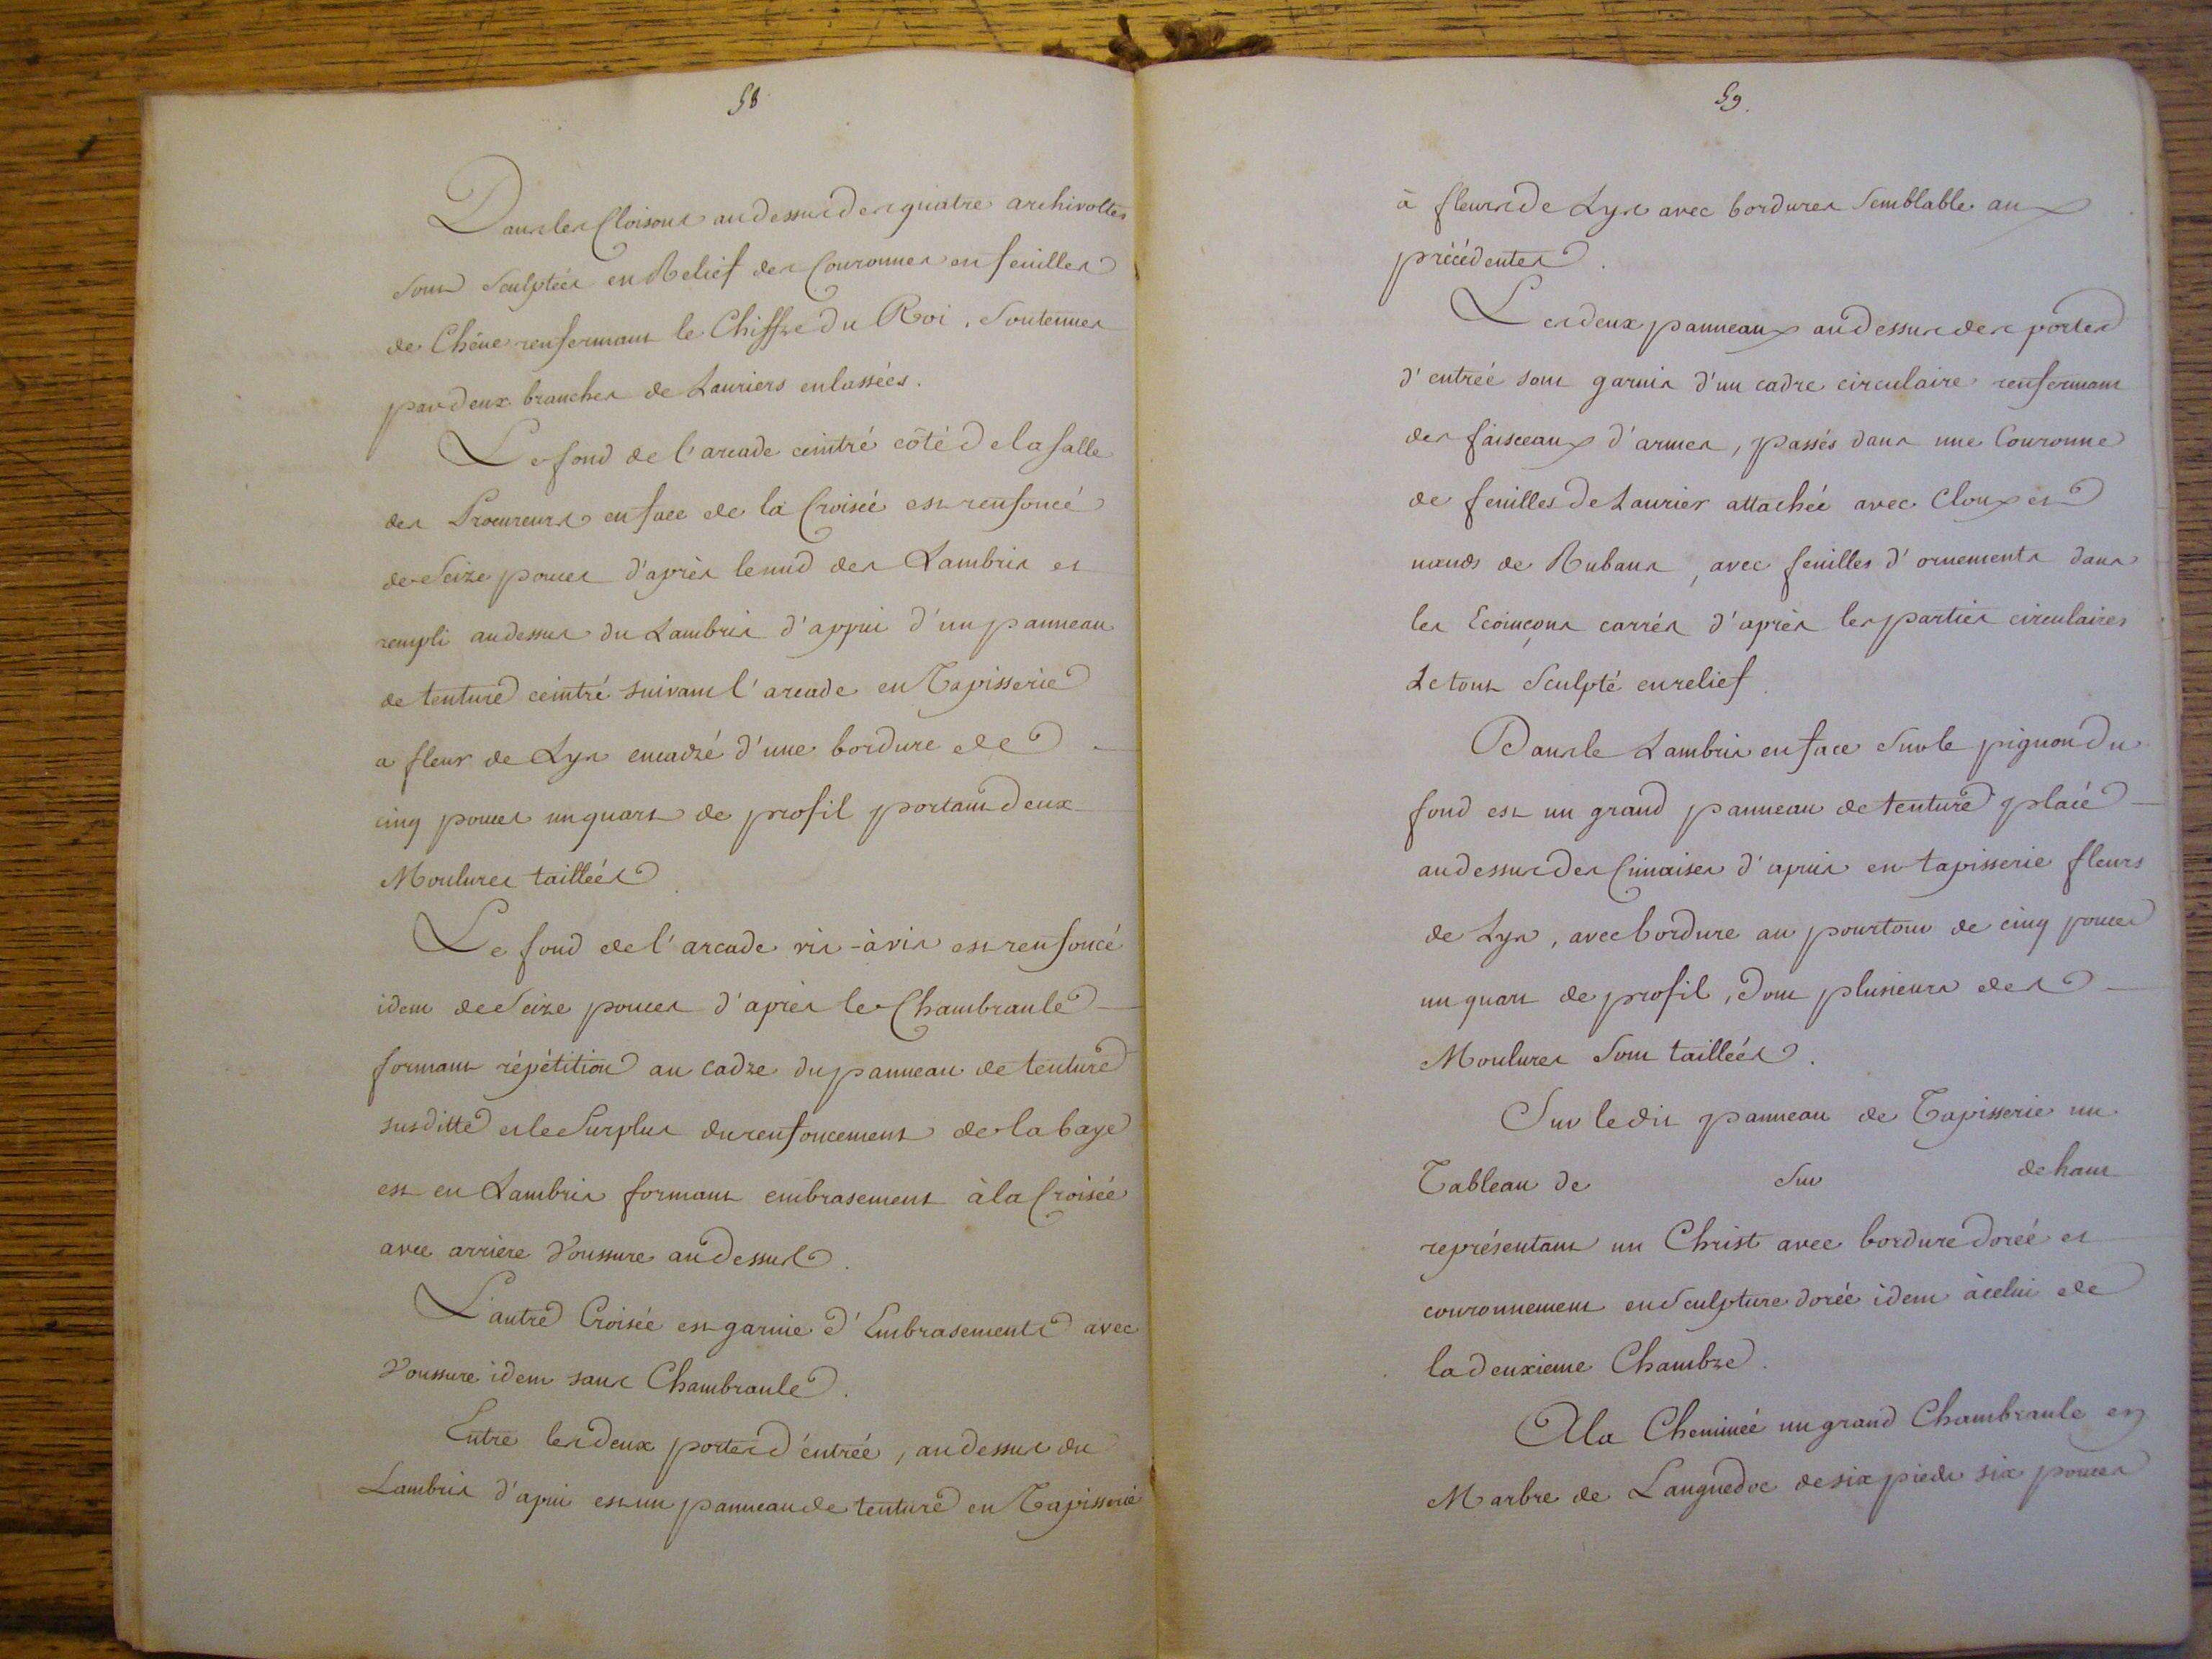 58
Dans les Cloisons au dessus des quatre archivoltes
sont Sculptées en Relief des Couronnes en feuilles
de Chêne renfermant le Chiffre du Roi, Soutenues
par deux branches de Lauriers enlassées.
Le fond de l'arcade ceintré côté de la salle
des Procureurs en face de la Croisée est renfoncé
de Seize pouces d'après le nud des Lambris et
rempli au dessus du Lambris d'appui d'un panneau
de tenture ceintré suivant l'arcade en Tapisserie
a fleur de Lys encadré d'une bordure de
cinq pouces un quart de profil portant deux
Moulures taillées.
Le fond de l'arcade vis-à vis est renfoncé
idem de Seize pouces d'après le Chambranle
formant répétition au cadre du panneau de tenture
susditte et le Surplus du renfoncement de la baye
est en Lambris formant embrasement à la Croisée
avec arrière Voussure au dessus.
L'autre Croisée est garnie d'Embrasements avec
Voussure idem sans Chambranle.
Entre les deux portes d'éntrée, au dessus du
Lambris d'apui est un panneau de tenture en Tapisserie
59.
à fleurs de Lys avec bordures Semblable aux
précédentes.
Les deux panneaux au dessus des portes
d'entrée sont garnis d'un cadre circulaire renfermant
des faisceaux d'armes, passés dans une Couronne
de feuilles de Laurier attachée avec Cloux et
nœuds de Rubans, avec feuilles d'ornements dans
les Ecoinçons carrés d'après les parties circulaires
Le tout Sculpté en relief.
Dans le Lambris en face Sur le pignon du
fond est un grand panneau de tenture placé
au dessus des Cimaises d'apuis en tapisserie fleurs
de Lys, avec bordure au pourtour de cinq pouces
un quart de profil, dont plusieurs des
Moulures Sont taillées.
Sur le dit panneau de Tapisserie un
Tableau de Sur de haut
représentant un Christ avec bordure dorée et
couronnement en Sculpture dorée idem à celui de
la deuxieme Chambre.
A la Cheminée un grand Chambranle en
Marbre de Languedoc de six pieds six pouces